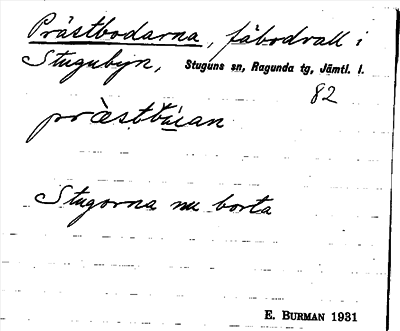 Prästbodarna, fäbodvall i
Stugubyn, Stuguns sn, Ragunda tg, Jämtl. l.
82
Stugorna nu borta
E. BURMAN 1931